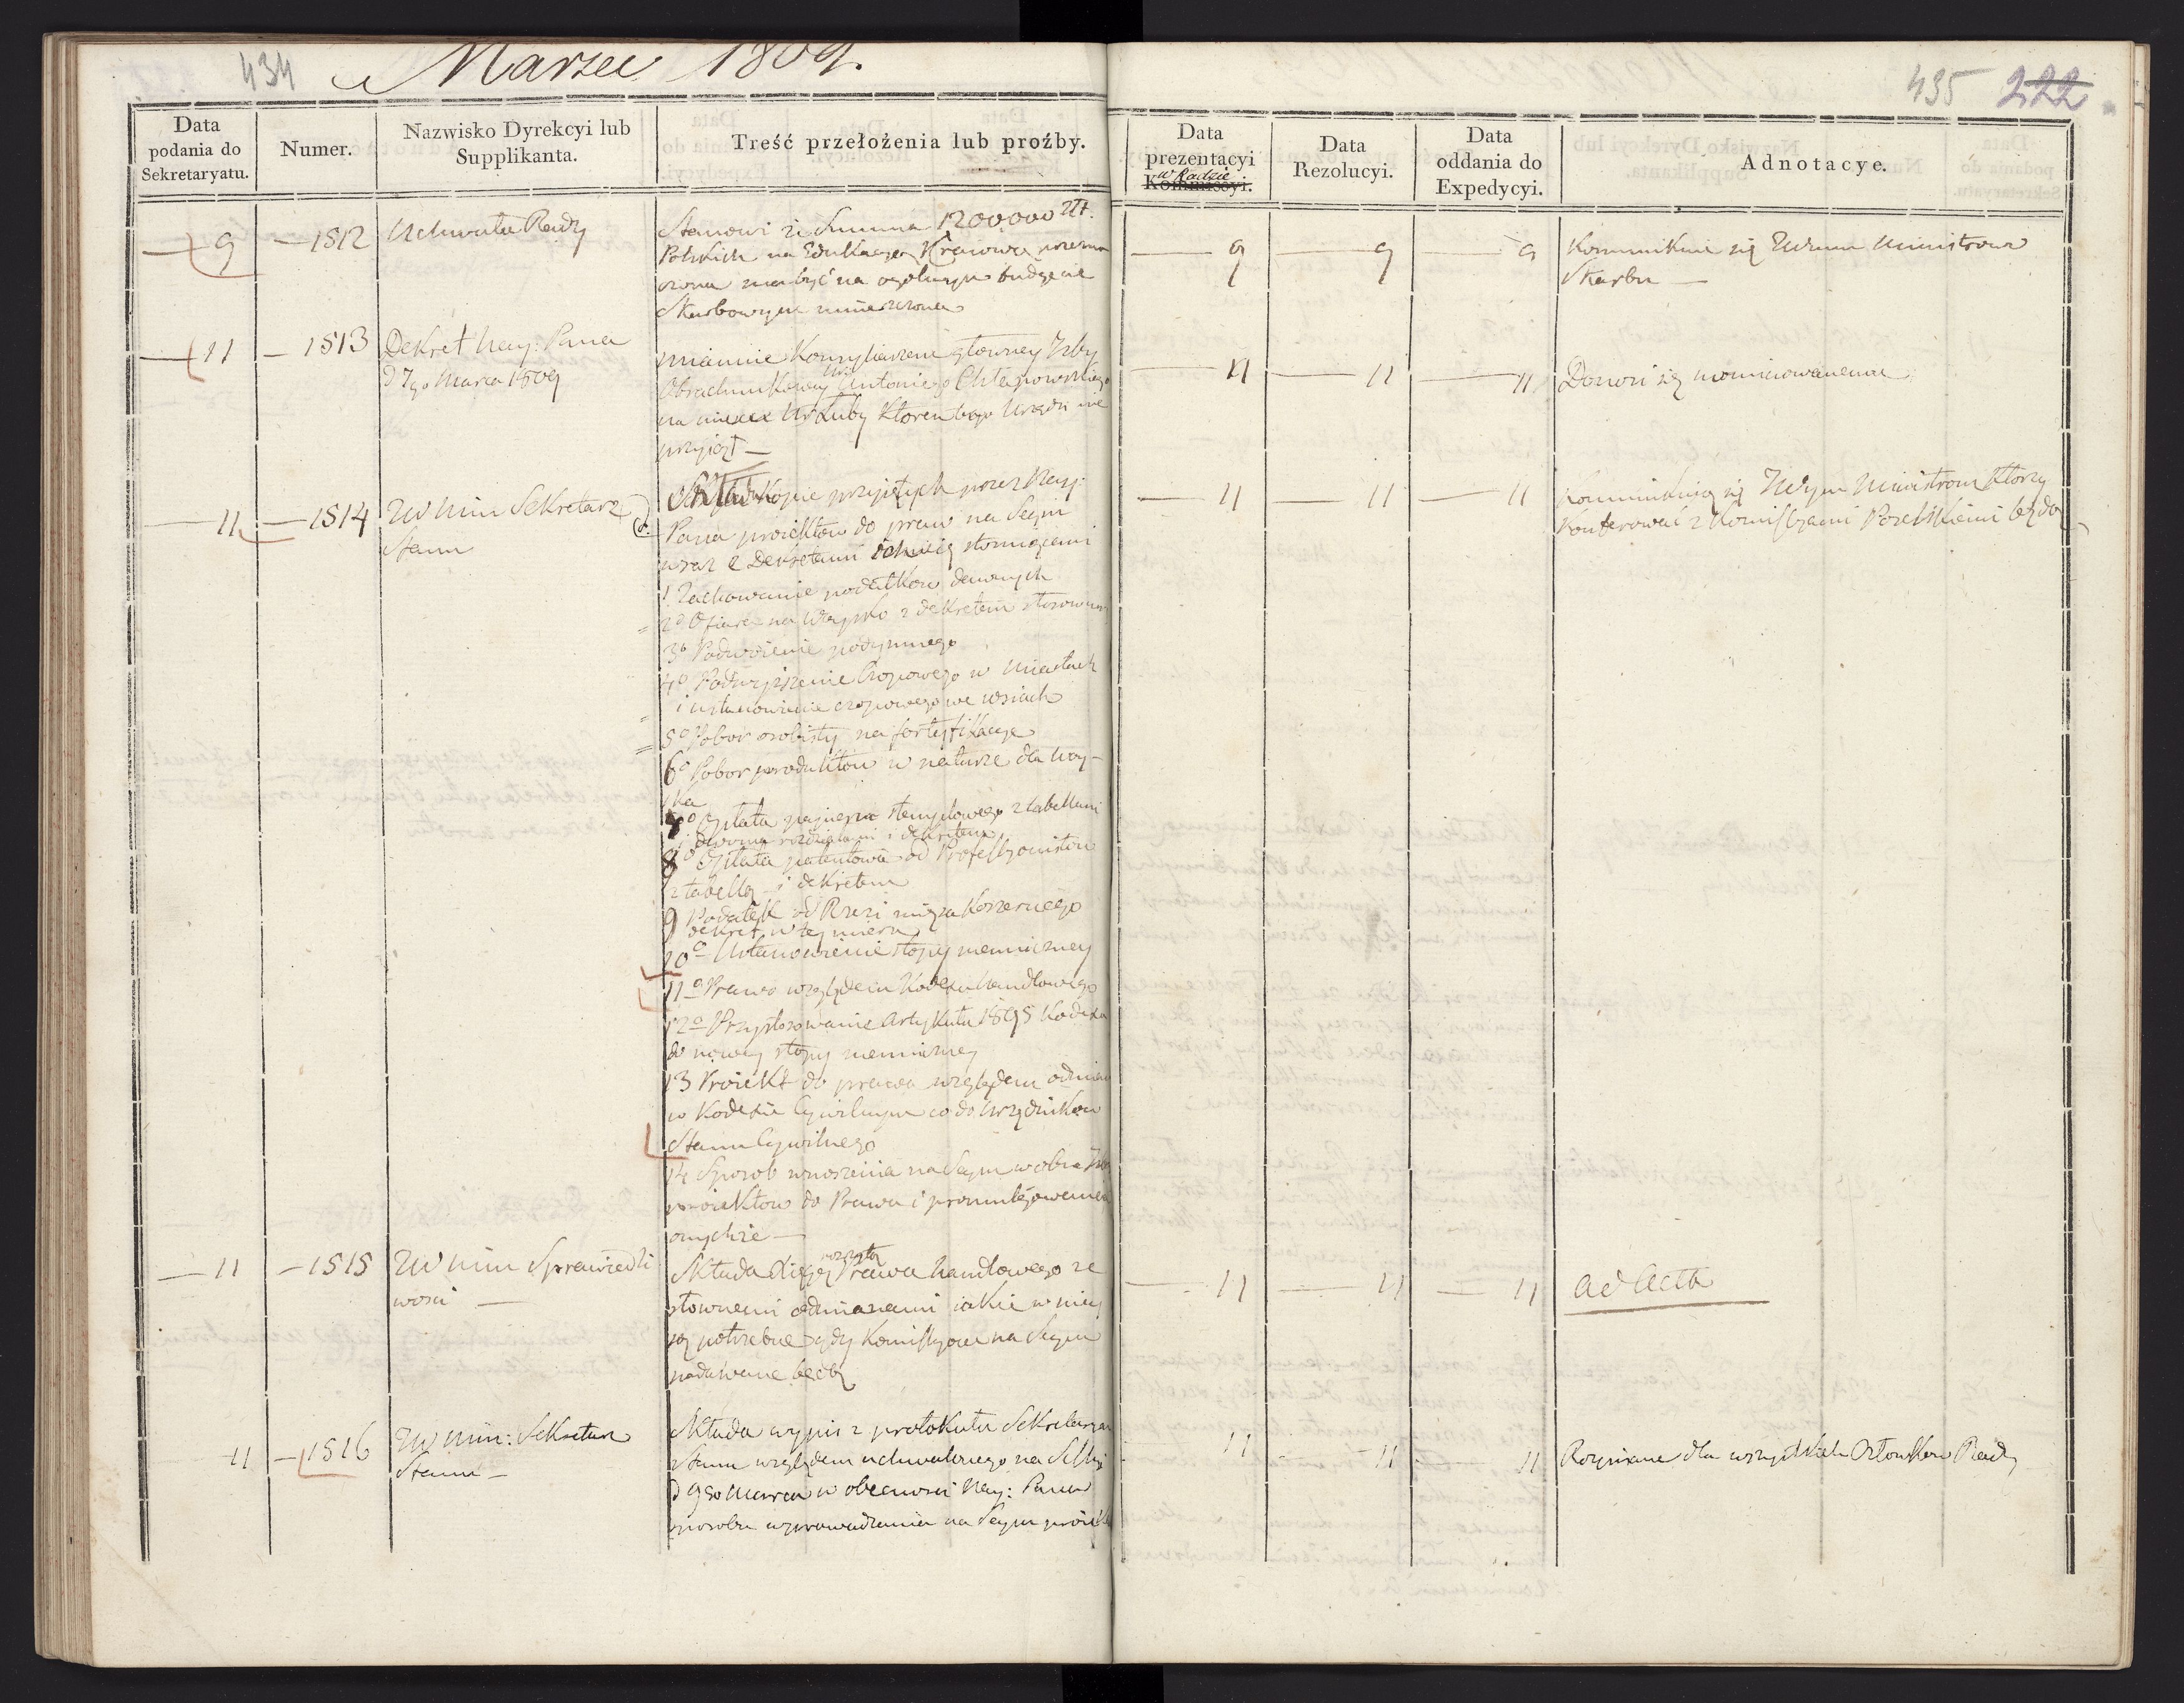 434
Marzec 1809.
435 222
Data podania do Sekretaryatu.
Numer.
Nazwisko Dyrekcyi lub Supplikanta.
Treść przełożenia lub proźby.
Data prezentacyi w Radzie Kommissyi.
Data Rezolucyi.
Data oddania do Expedycyi.
Adnotacye.
9
1512
Uchwała Rady
Stanowi iż Summa 1200000 Złt.
Polskich na Edukacyą Kraiową przezna
czona ma być na ogolnym budżecie
Skarbowym umieszczona
9
9
9
Kommunikuie się Ministrowi
Skarbu
11
1513
Dekret Nay: Pana
d 7go Marca 1809
mianuie Konsyliarzem głowney Izby
Obrachunkowey Ur Antoniego Chłapowskiego
na mieysce Ur Łuby ktoren tego Urzędu nie
przyiął
11
11
11
Donosi się nominowanemu
11
1514
JW Min Sekretarz
Stanu
Składa kopie przyiętych przez Nay:
Pana proiektow do praw na Seym
wraz z Dekretami
1 Zachowanie podatkow dawnych
2o Ofiara na Woysko z dekretem stosownym
3o Podwoienie podymnego
4o Podwyższenie Czopowego w Miastach
i ustanowienie czopowego we wsiach
5o Pobor osobisty na fortyfikacye
6o Pobor produktow w naturze dla Woy-
ska
7o Opłata papieru stemplowego z tabellami
i dwoma rozdziałami i dekretem
8o Opłata patentowa od Professyonistow
z tabellą i dekretem
9 Podatek od Rzezi mięsa koszernego
dekret w tey mierze
10o Ustanowienie stopy menniczney
11o Prawo względem Kodexu handlowego
12o Przystosowanie Artykułu 1895 Kodexu
do nowey stopy menniczney
13 Proiekt do prawa względem odmian
w Kodexie Cywilnym co do Urzędnikow
Stanu Cywilnego
14 Sposob wnoszenia na Seym w obie Izby
proiektow do Prawa i promulgowania
onychże
11
11
11
Kommunikuią się JWym Ministrom ktorzy
konferować z Komissyami Poselskiemi będą
11
1515
JW Min Sprawiedli
wosci
Składa Xięgę Prawa handlowego ze
stosownemi odmianami iakie w niey
są potrzebne gdy Komissyom na Seym
podawane będą
11
11
11
ad Acta
11
1516
JW Min: Sekretarz
Stanu
Składa wypis z protokułu Sekretarza
Stanu względem uchwalonego na Sessyi
d 9go Marca w obecnosci Nay: Pana
sposobu wprowadzania na Seym proiektow
11
11
11
Rozpisane dla wszystkich Członkow Rady